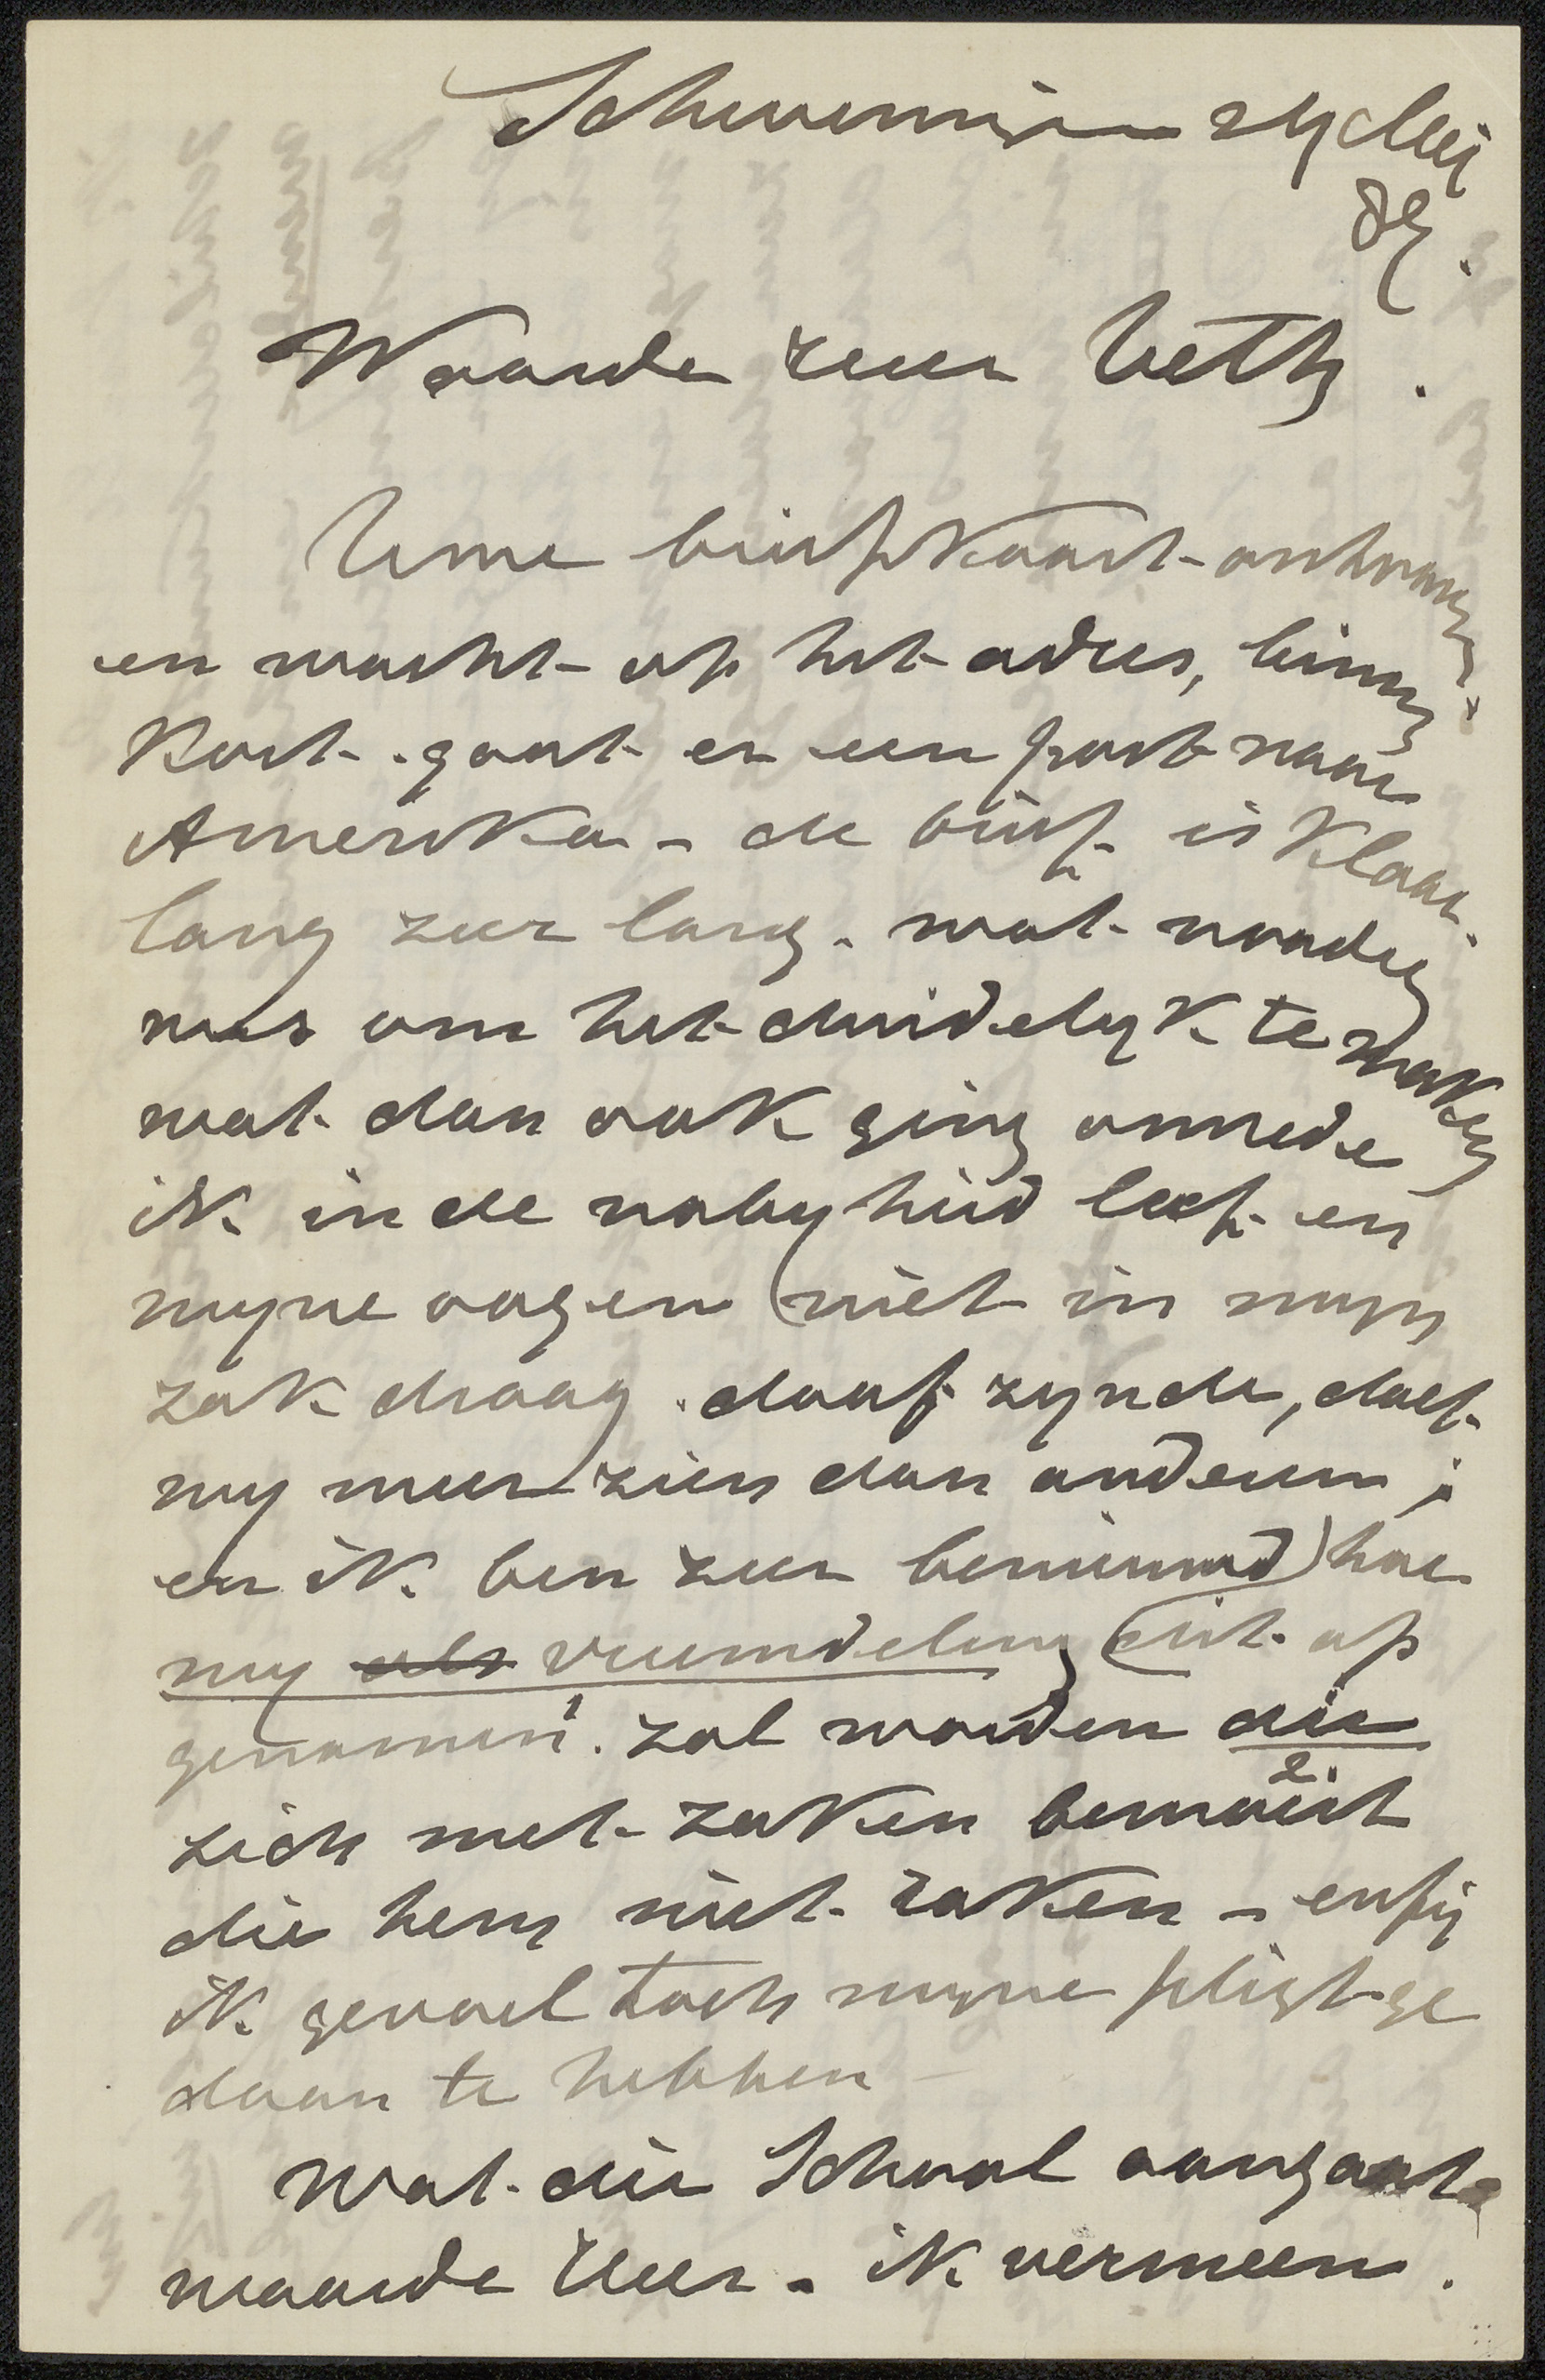 Scheveningen 24 Mei
89.
Waarde Heer Veth.
Uwe briefkaart ontvangen
en wacht op het adres, binnen
Kort gaat er een post naar
Amerika - de brief is Klaar.
lang zeer lang. wat noodig
was om het duidelyk te maken
wat dan ook ging omrede
ik in de nabyheid leef en
myne oogen niet in myn
zak draag. doof zynde, doet
my meer zien dan anderen;
en ik ben zeer benieuwd hoe
my als vreemdeling dit op
genomen 1. zal worden die
2.
zich met zaken bemoeit
die hem niet raken - enfin
ik gevoel toch myne pligt ge
daan te hebben -
Wat die School aangaat
waarde Heer. ik vermeen.